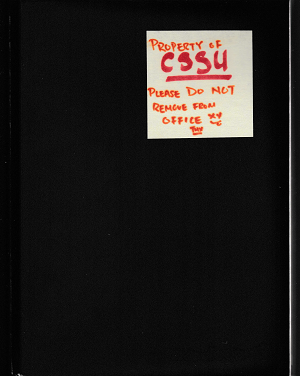 PROPERTY OF
CSSU
PLEASE DO NOT
REMOVE FROM
OFFICE
THX